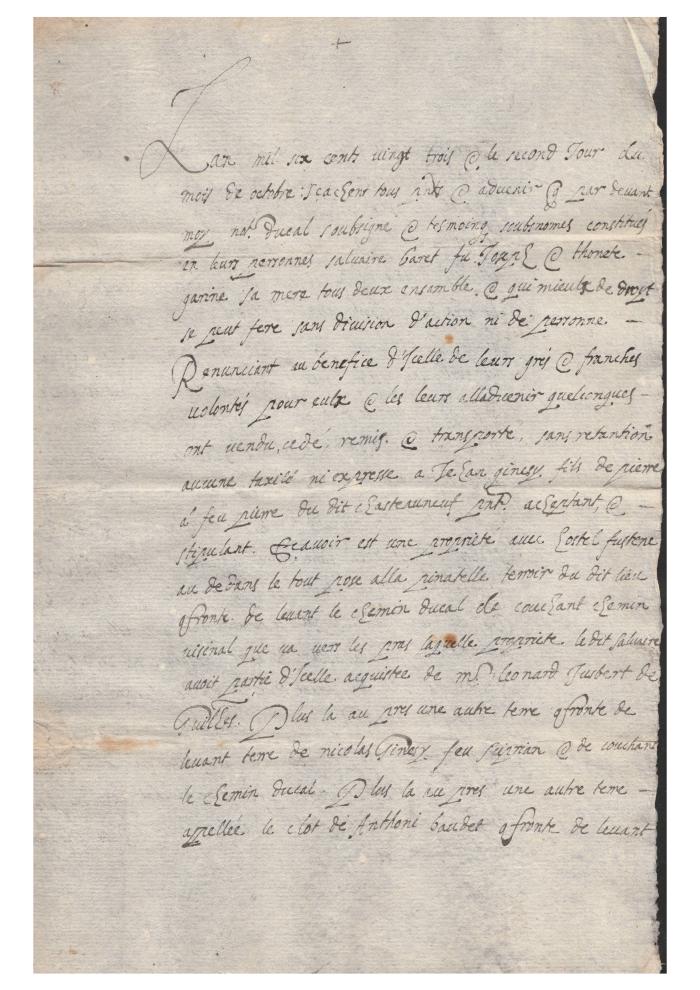 Lan mil six cents vingt trois @ le second Jour du
mois de octobre Scachent tous pnts @ advenir q par devant
moy not. ducal soubsigné @ tesmoings soubsnomes constitués
en leurs personnes salvaire baret fu @ thonete
garine sa mere tous deux ensamble @ qui mieulx de droit
se peut fere sans division d'action ni de personne
Renunciant au benefice d'Icelle de leurs grés @ franches
volontés pour eulx @ les leurs alladvenir quelconques
ont vendu, cedé, remis, @ transporte, sans retantion
aucune taxité ni expresse a Jehan ginesy fils de pierre
à feu pierre du dit chasteauneuf pnt acheptant, @
stipulant. Scavoir est une propriété avec hostel fustene
au dedans le tout pose alla pinatelle terroir du dit lieu
qfronte de levant le chemin ducal de couchant chemin
visinal que va vers les pras laquelle propriete le dit salvaire
avoit partie d'Icelle acquistee de mr leonard Jusbert de
Guilles. Plus la au pres une autre terre qfronte de
levant terre de nicolas Ginesy feu siprian @ de couchant
le chemin ducal. Plus la au pres une autre terre
appellée le clot de Anthoni baudet qfronte de levant